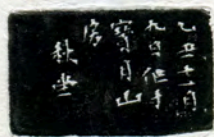 乙丑十一月
九日作于
寶月山
房
秋堂